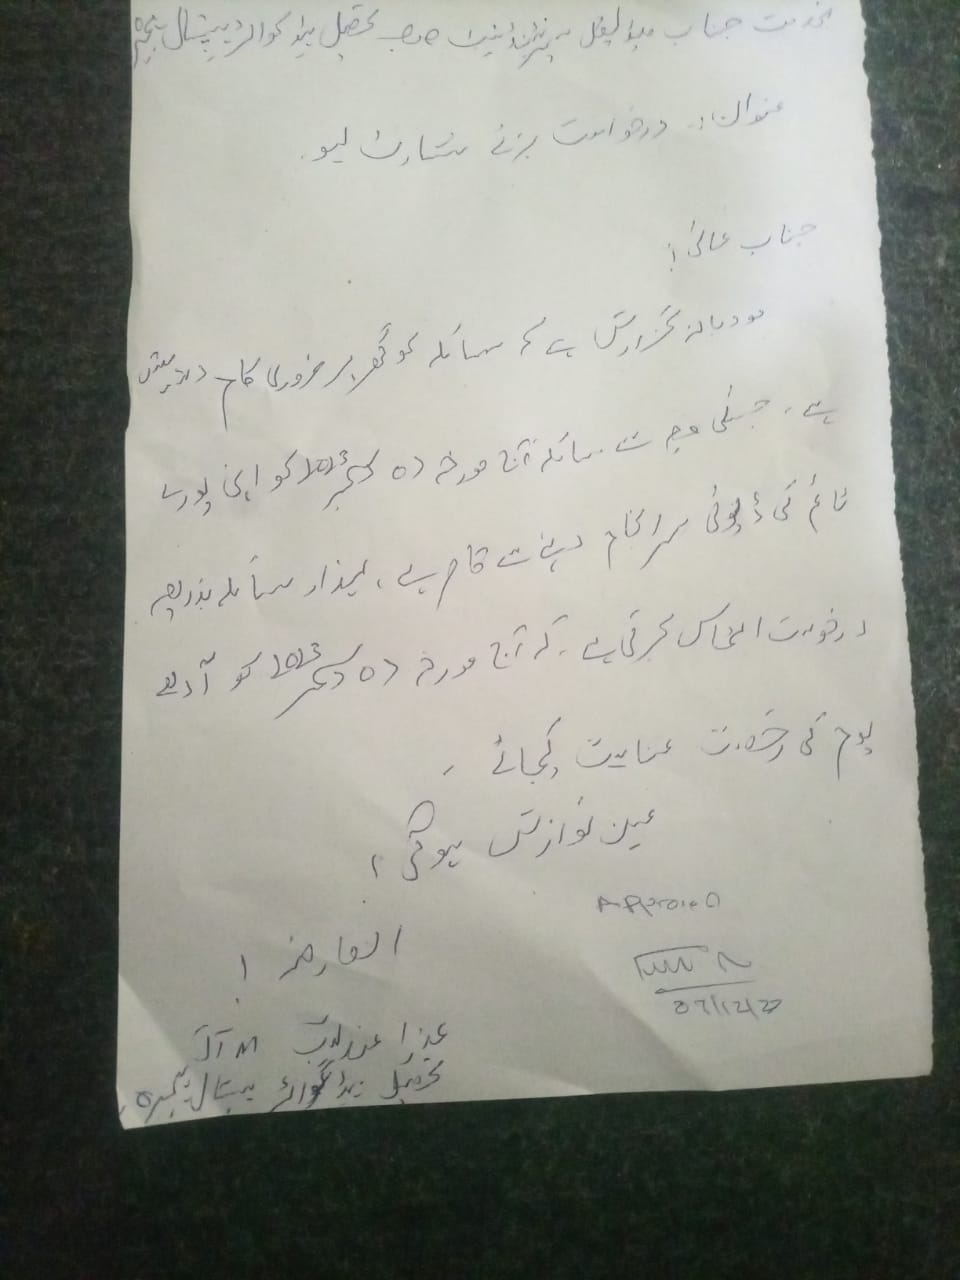 بخدمت جناب میڈیکل سپرنٹنڈنٹ صاحب تحصیل ہیڈ کوارٹر ہسپتال
عنوان:۔ درخواست برائے شارٹ لیو۔
جناب عالی!
مودبانہ گزارش ہے کہ سائلہ کو گھر پر ضروری کام درپیش
ہے۔ جسکی وجہ سے سائلہ آج مورخہ دسمبر کو اپنی پورے
ٹائم کی ڈیوٹی سرانجام دینے سے قاصر ہے، لہذا سائلہ بذریعہ
درخواست التماس کرتی ہے۔ کہ آج مورخہ دسمبر کو آدھے
یوم کی رخصت عنایت کیجائے۔
عین نوازش ہوگی!
Approved
العارضہ!
عذرا
تحصیل ہیڈ کوارٹر ہسپتال